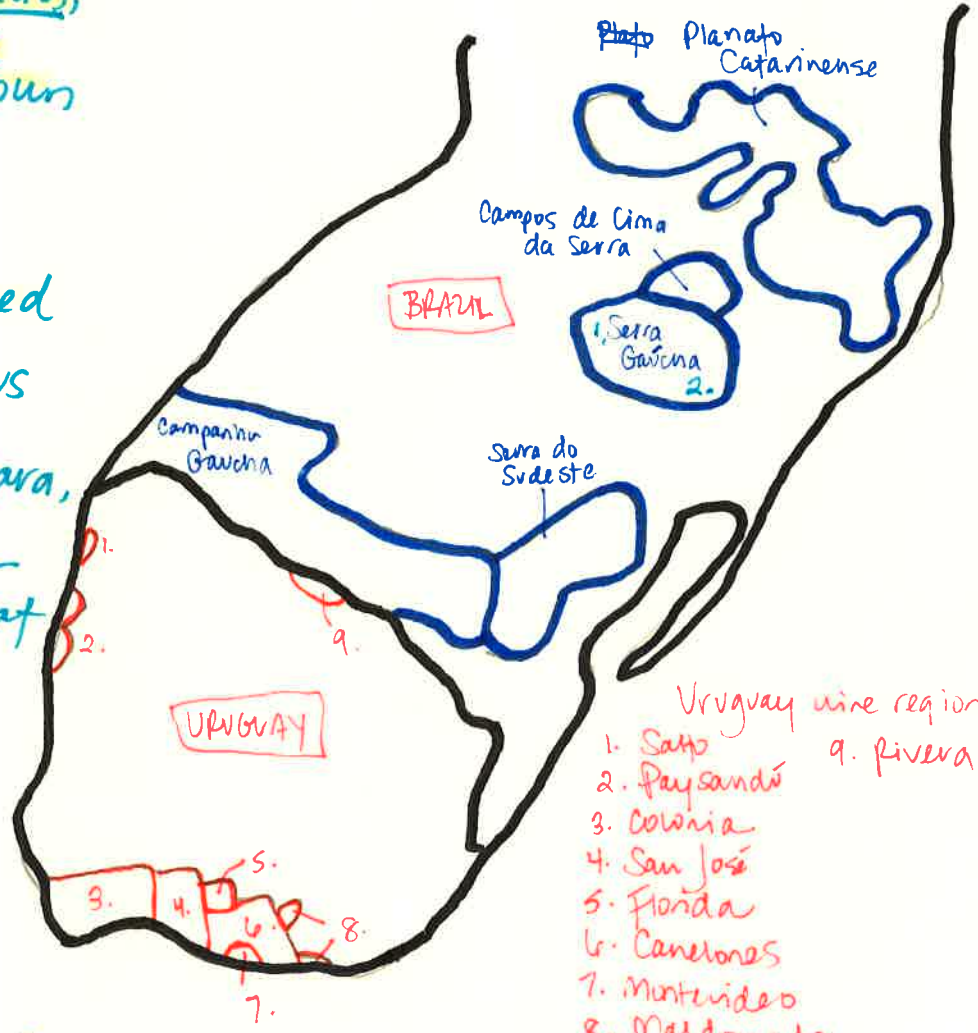 oun
ed
ws
ara,
at
Planato
Catarinense
Campos de Cima
da Serra
BRAZIL
1. Serra
Gaúcha
2.
Campanha
Gaucha
Serra do
Sudeste
1.
2.
9.
URUGUAY
3.
4.
5.
6.
8.
7.
Uruguay wine region
1. Salto
9. Rivera
2. Paysandú
3. Colonia
4. San José
5. Florida
6. Canelones
7. Montevideo
8. Maldonado